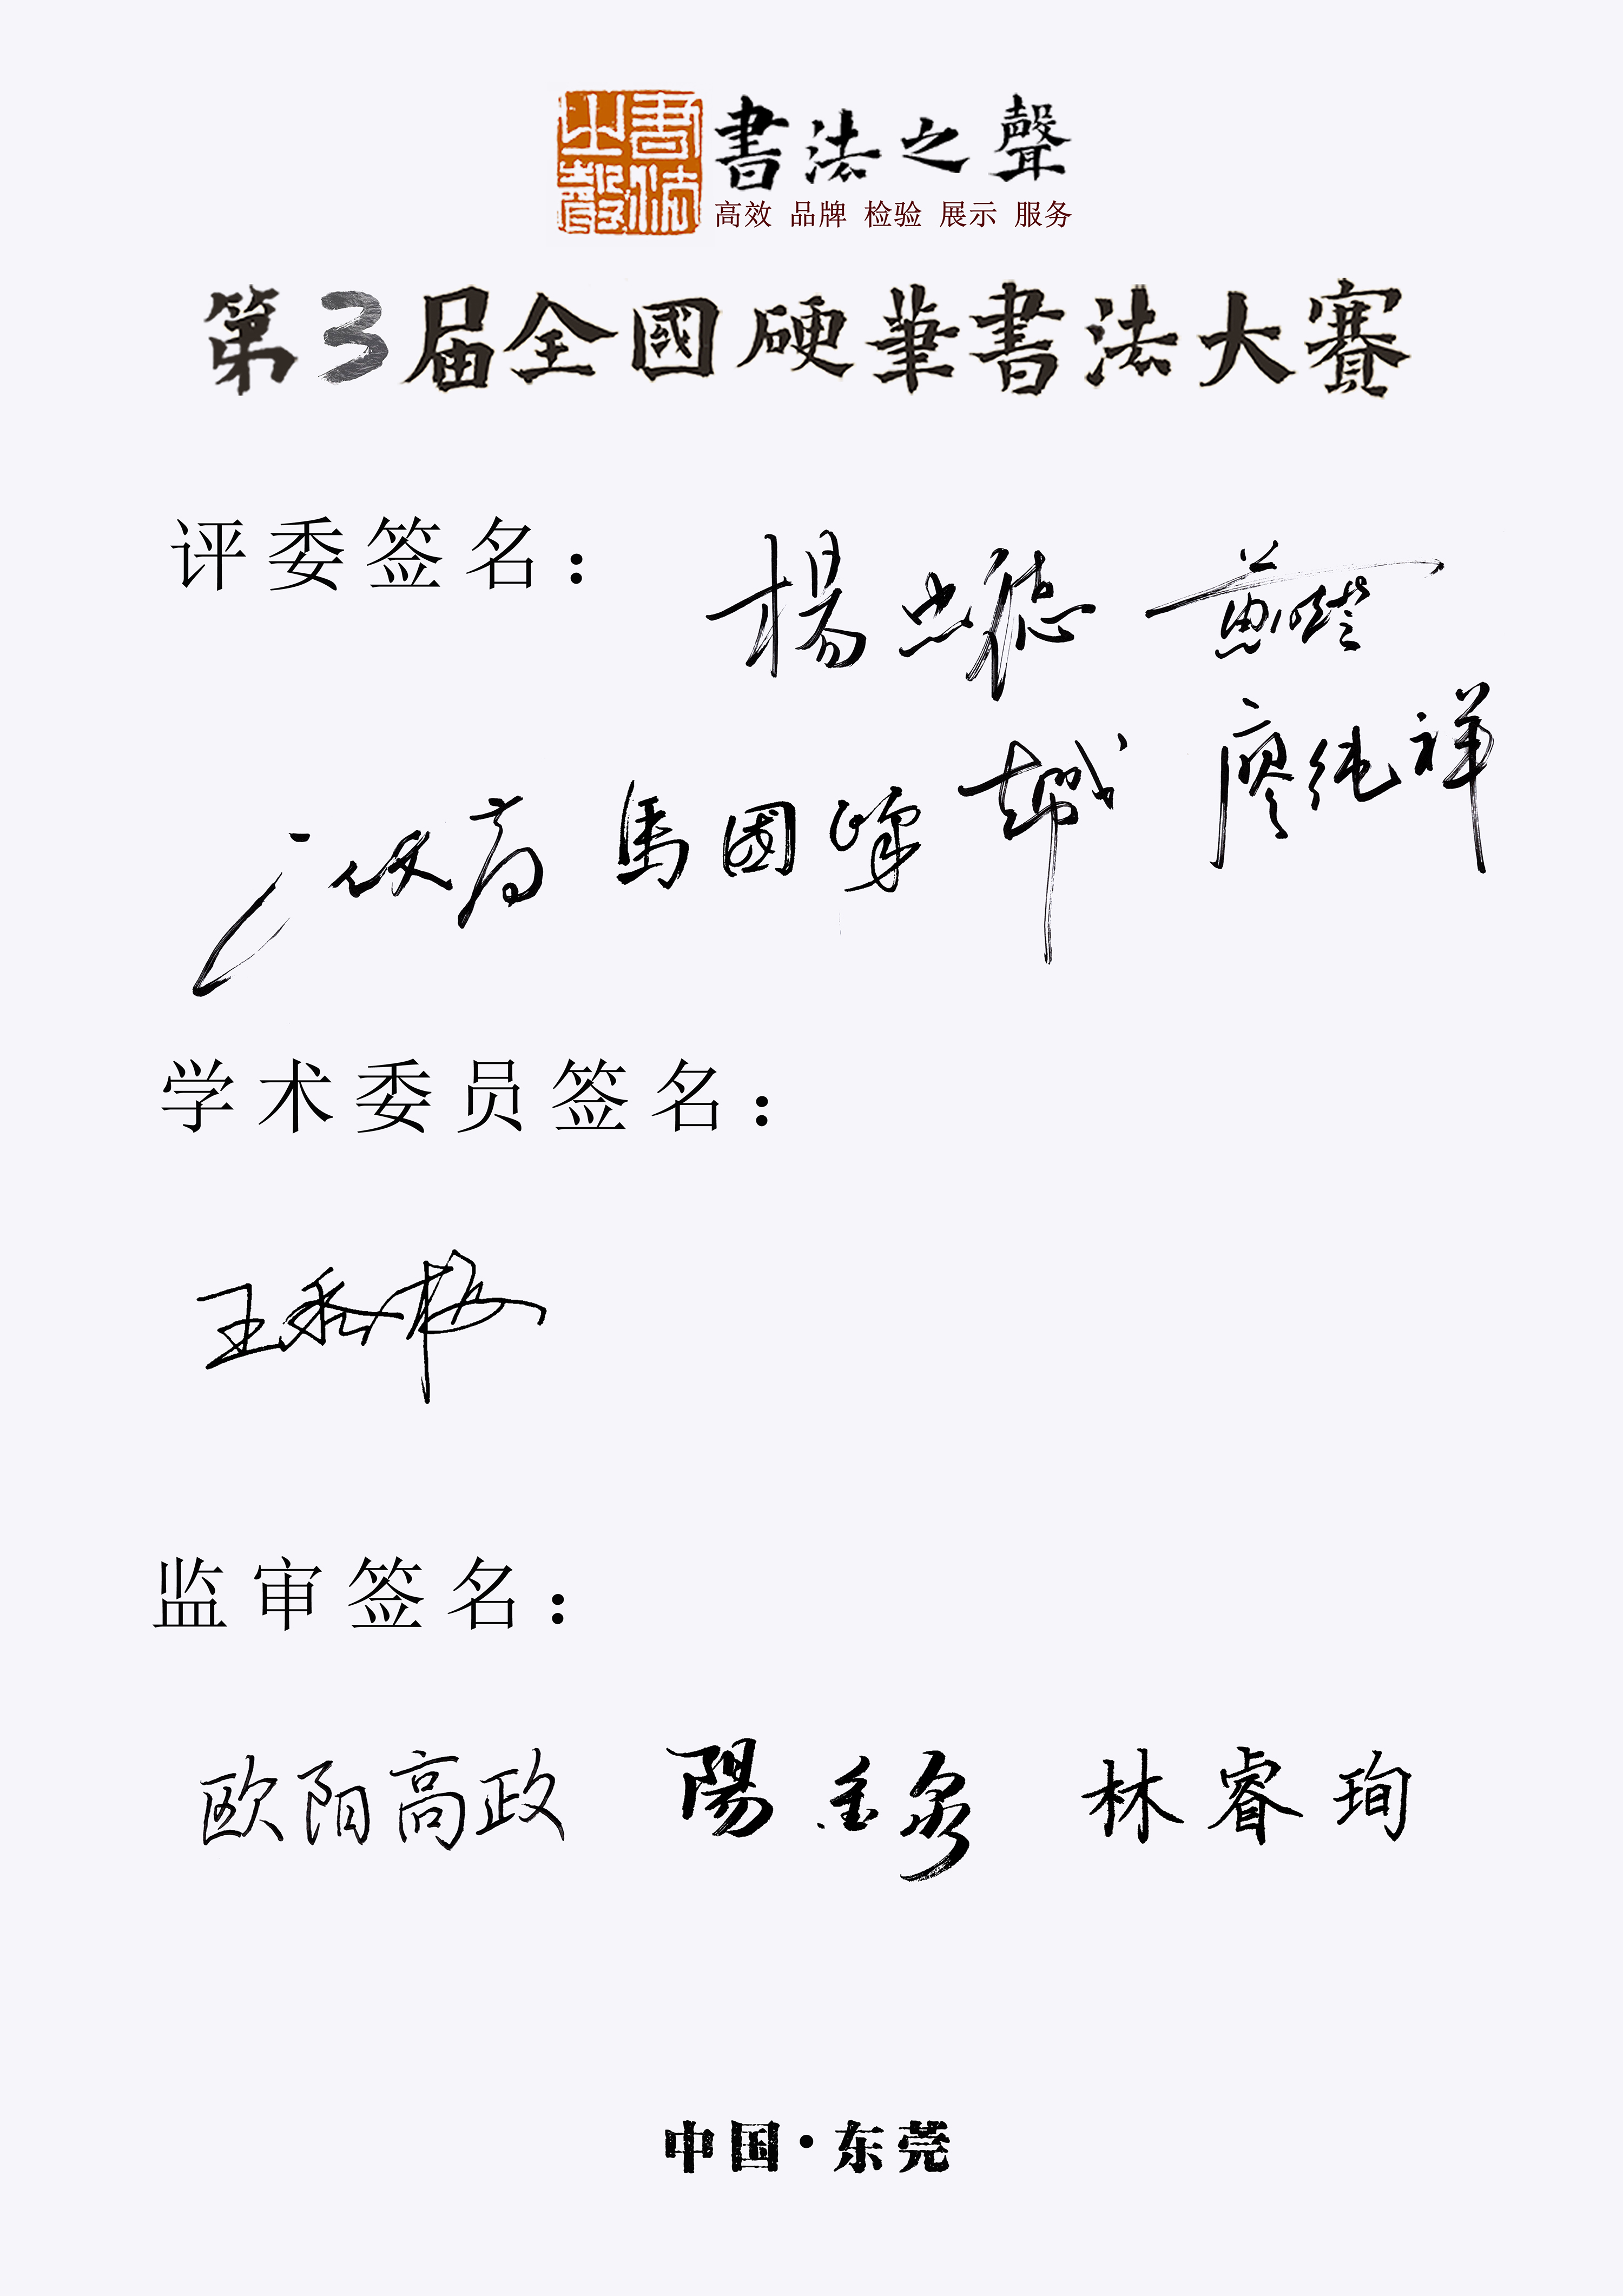 書法之聲
書法之聲
高效 品牌 检验 展示 服务
第3届全國硬筆書法大賽
评委签名：
楊忠德
馬國峰 廖纯祥
学术委员签名：
王秀梅
监审签名：
欧阳高政 陽金泉 林睿珣
中国·东莞